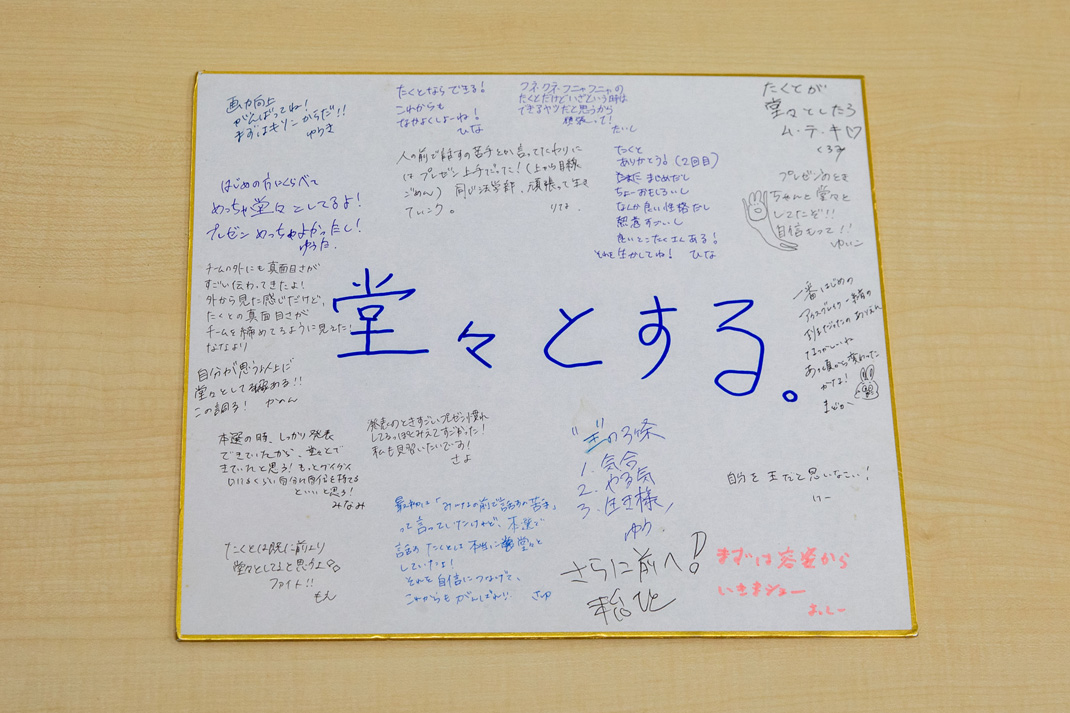 画力向上
がんばってね！
まずはキリンからだ!!
ゆうき
たくとならできる！
これからも
なかよくしよーね！
ひな
フネクネフニャフニャの
たくとだけどいざという時は
できるヤツだと思うから
頑張って！
たいし
たくとが
堂々としたら
ム・テ・キ♡
くるみ
はじめの方にくらべて
めっちゃ堂々としてるよ！
プレゼンめっちゃよかったし！
ゆうた
人の前で話すの苦手とか言ってたわりに
はプレゼン上手だった！(上から目線
ごめん) 同じ法学部、頑張って生き
ていこう。
りな
たくと
ありがとう！(2回目)
まじめだし
ちょーおもしろいし
なんか良い性格だし
熱意すごいし
良いとこたくさんある！
それを生かしてね！ ひな
プレゼンのとき
ちゃんと堂々と
してたぞ!!
自信もって!!
ゆいこ
チームの外にも真面目さが
すごい伝わってきたよ！
外から見た感じだけど、
たくとの真面目さが
チームを締めてるように見えた！
ななより
堂々とする。
一番はじめの
アイスブレイク一緒の
班だったの
なつかしいね
あの頃から変わった
かな！
まどか
自分が思う以上に
堂々として
この調子！ かのん
本選の時、しっかり発表
できていたから、堂々とで
きていたと思う！もっとグイグイ
自分に自信を持てる
といいと思う！
みなみ
発表のときすごいプレゼン慣れ
してるっぽくみえてすごかった！
私も見習いたいです！
さよ
"ぎ"の3条
1. 気合
2. やる気
3. 生き様
ゆう
自分を王だと思いなさい！
いー
たくとは既に前より
堂々としてると思うよ
ファイト!!
もえ
最初は「みーんなの前で話すの苦手」
って言っていたけれど、本選で
話すたくとは本当に堂々と
していたよ！
それを自信につなげて、
これからもがんばれ!! さゆ
さらに前へ！
まずは容姿から
いきまショー
よっしー